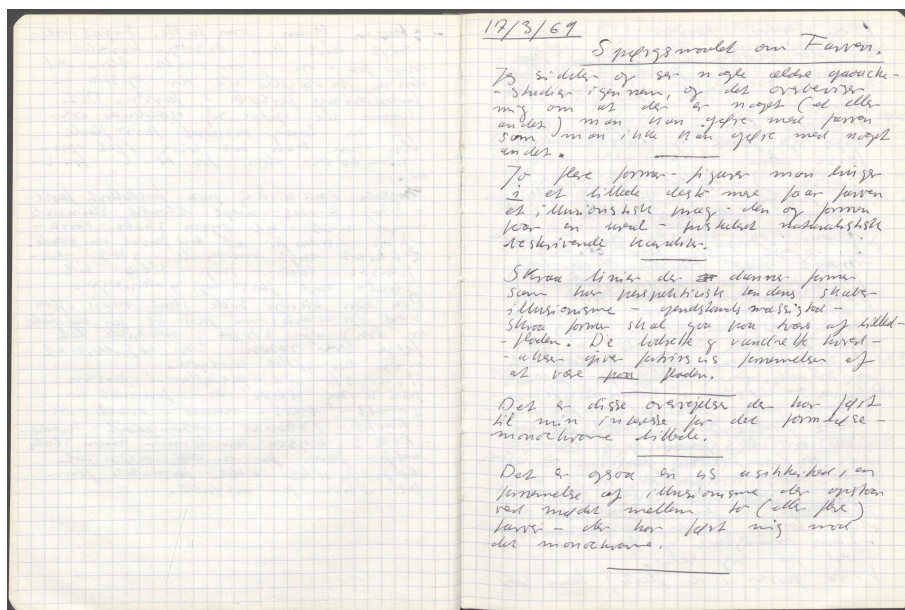 17/3/69
Spørgsmaalet om Farven.
Jeg sidder og ser nogle ældre gouache-
-studier igennem, og det overbeviser
mig om at der er noget (et eller
andet) man kan gøre med farven
som man ikke kan gøre med noget
andet.
Jo flere former - figurer man bringer
i et billede desto mere faar farven
et illusionistisk præg - den og formen
faar en - naturalistisk
beskrivende karakter.
Skraa linier der danner former
som har perspektivisk tendens skaber
illusionisme - genstandsmæssighed -
skraa former skal gaa paa tværs af billed-
-fladen. De lodrette & vandrette hoved-
-akser giver fornemmelsen af
at være paa fladen.
Det er disse overvejelser der har ført
til min interesse for det formløse -
monochrome billede.
Det er ogsaa en vis usikkerhed, en
fornemmelse af illusionisme der opstaar
ved mødet mellem to (eller flere)
farver - der har ført mig mod
det monochrome.